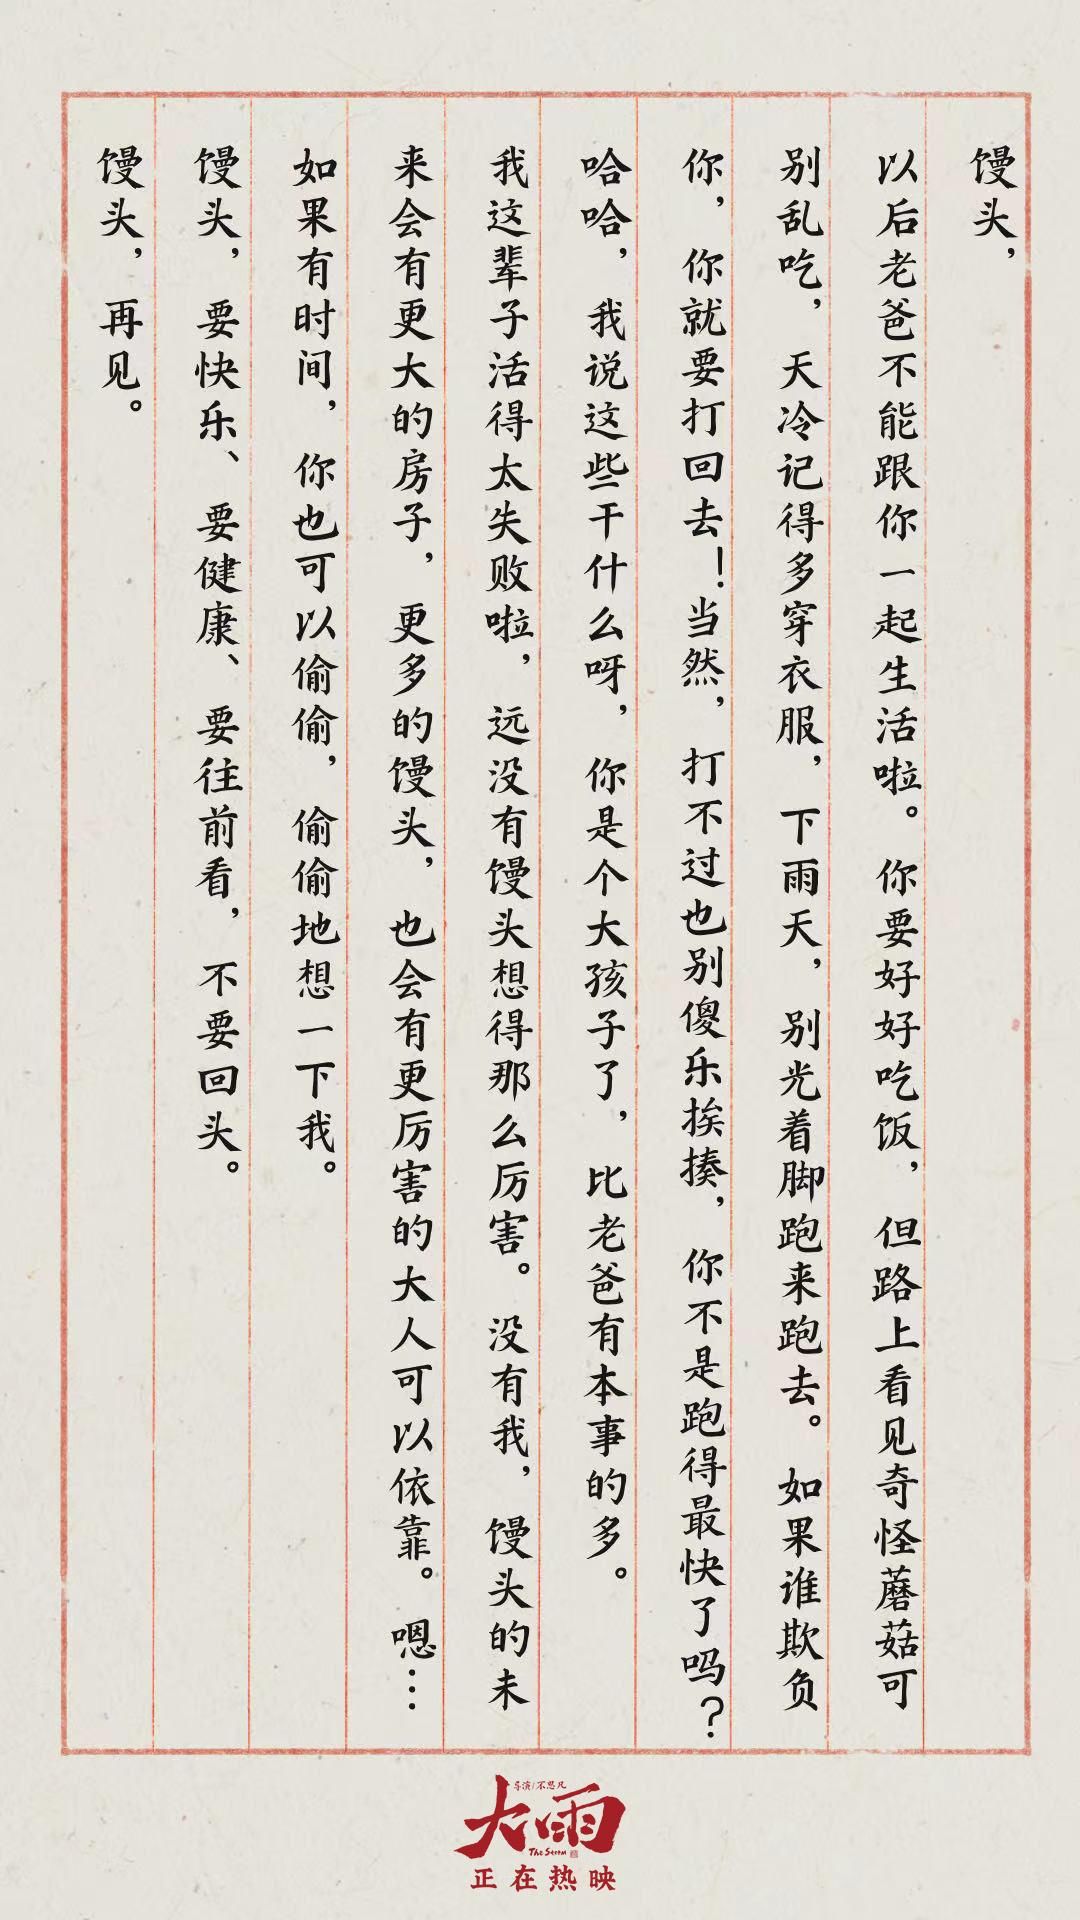 馒头，
以后老爸不能跟你一起生活啦。你要好好吃饭，但路上看见奇怪蘑菇可
别乱吃，天冷记得多穿衣服，下雨天，别光着脚跑来跑去。如果谁欺负
你，你就要打回去！当然，打不过也别傻乐挨揍，你不是跑得最快了吗？
哈哈，我说这些干什么呀，你是个大孩子了，比老爸有本事的多。
我这辈子活得太失败啦，远没有馒头想得那么厉害。没有我，馒头的未
来会有更大的房子，更多的馒头，也会有更厉害的大人可以依靠。嗯…
如果有时间，你也可以偷偷，偷偷地想一下我。
馒头，要快乐、要健康、要往前看，不要回头。
馒头，再见。
导演/不思凡
大雨
The Storm
正在热映